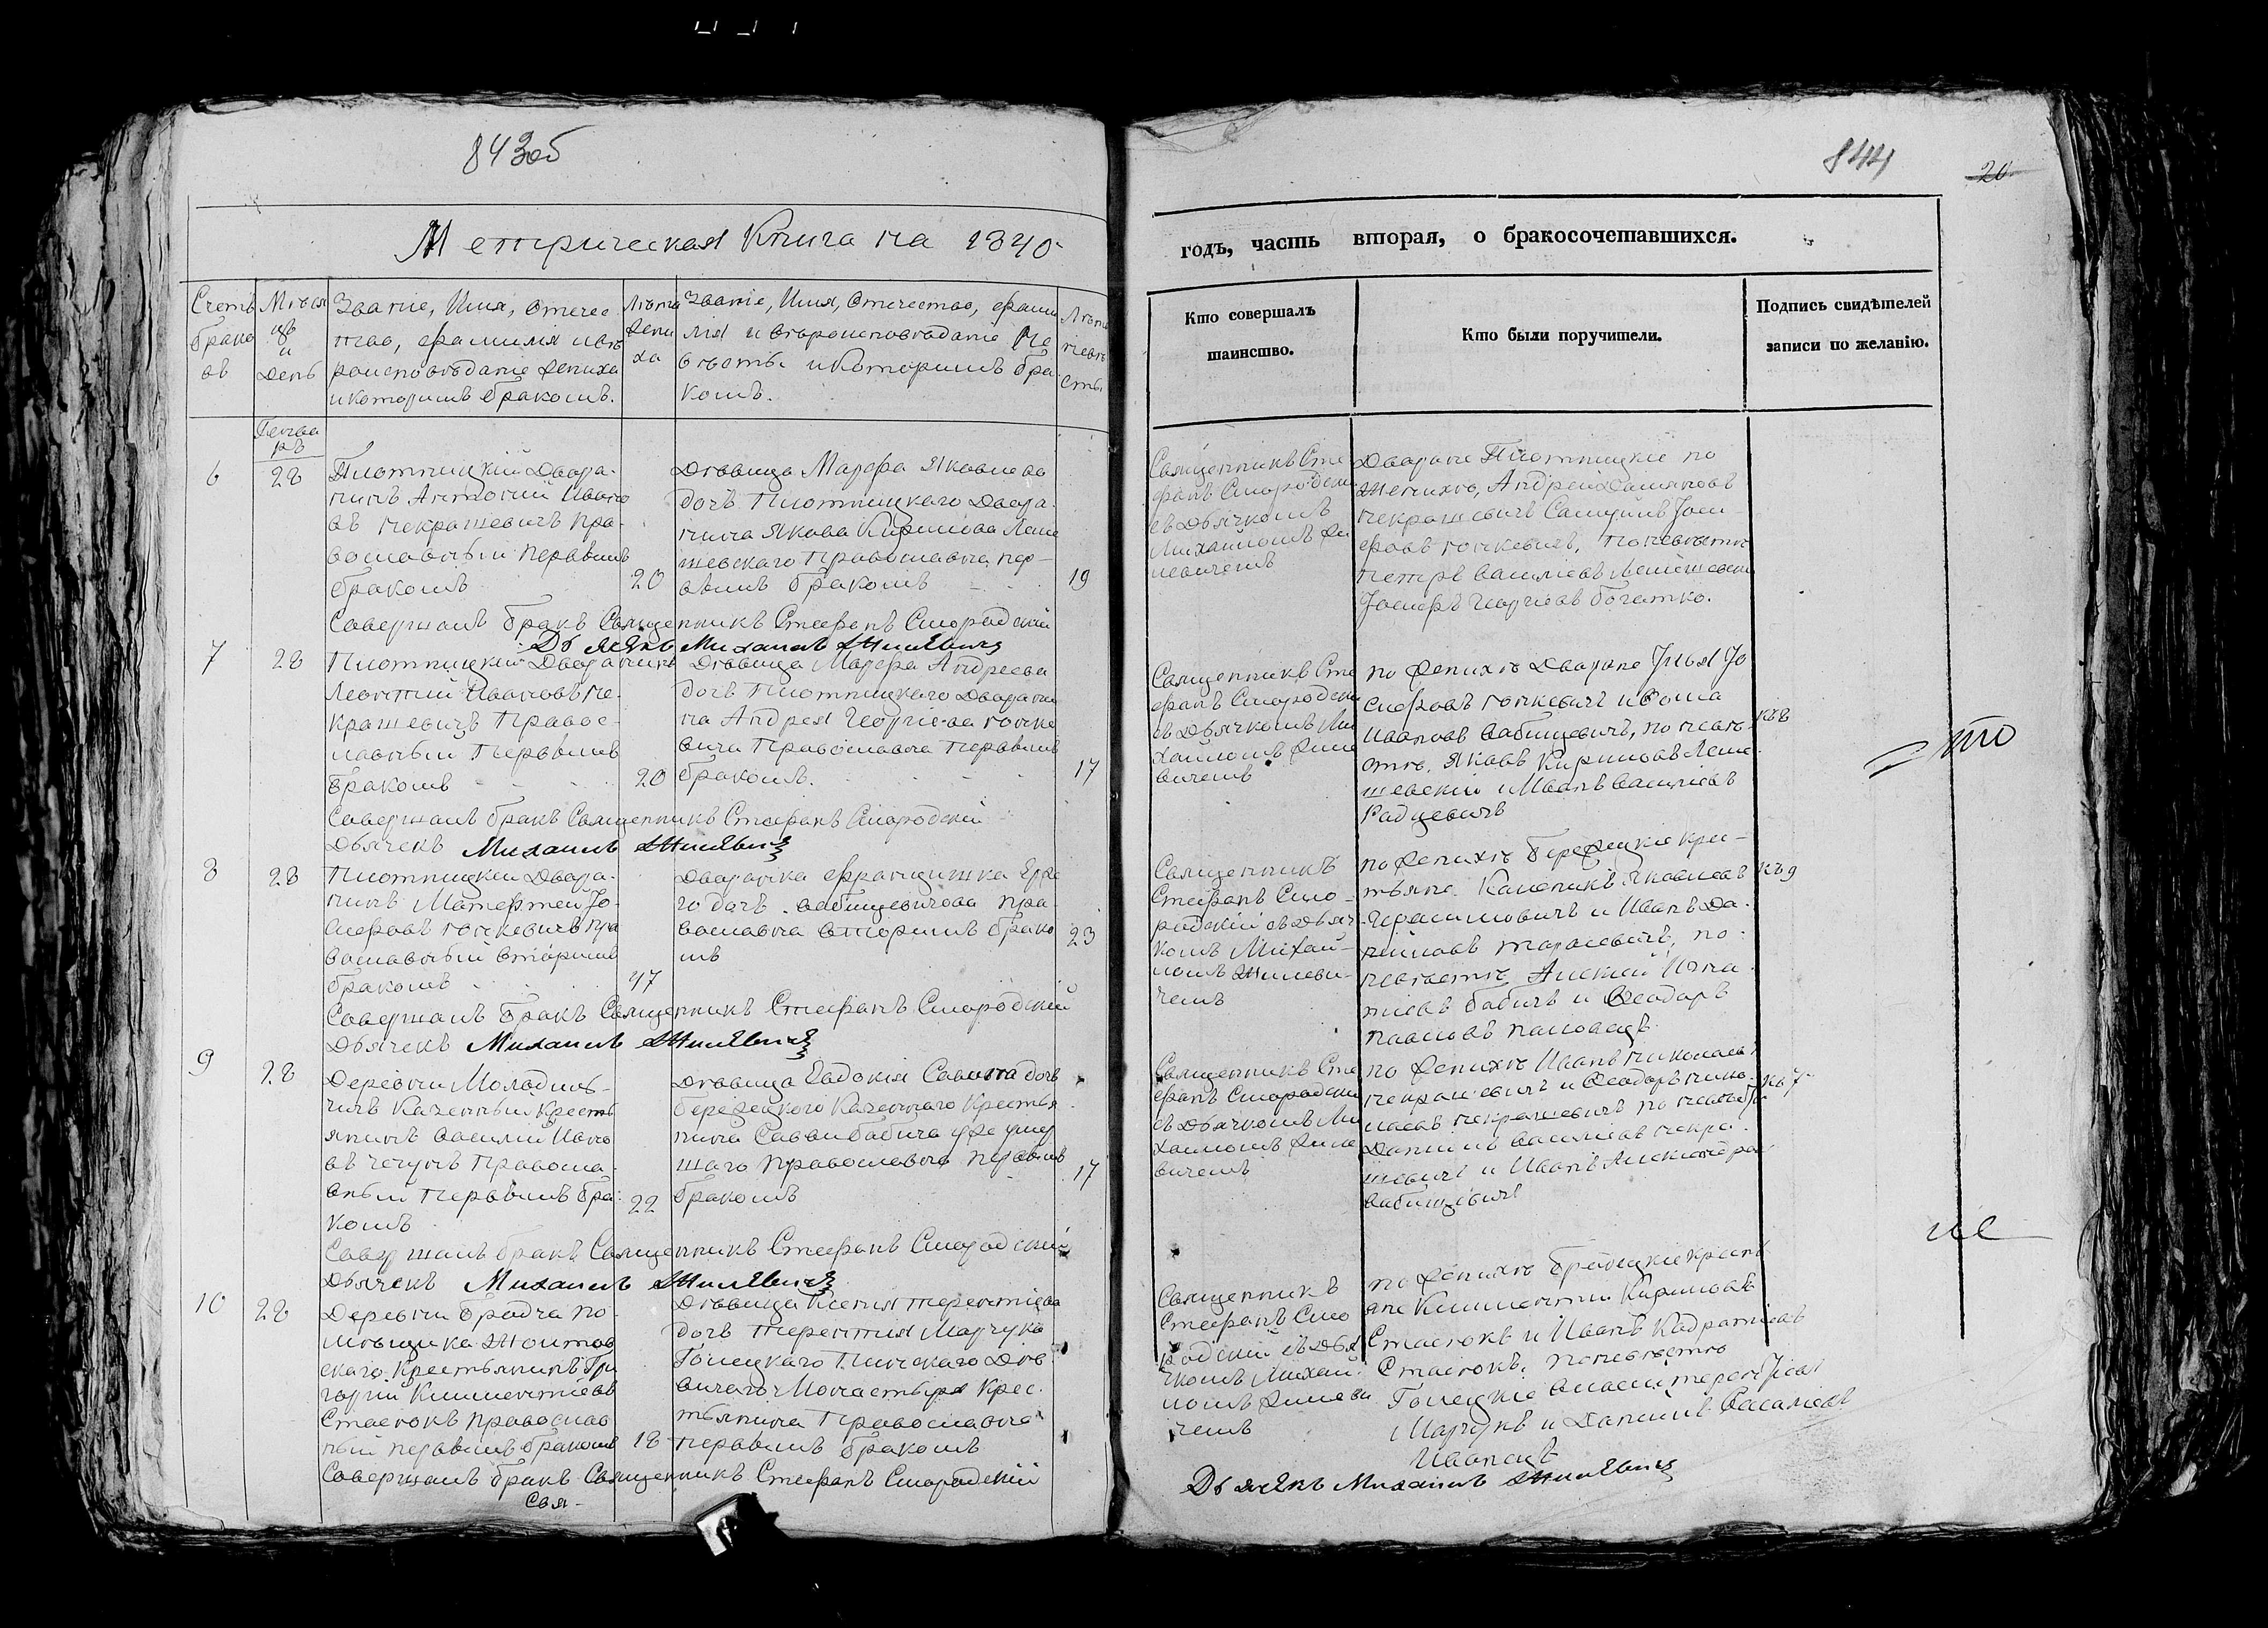 843об
Метрическая Книга на 1840
Счетъ
брако
въ
Мѣся
цъ
и
день
Званіе, Имя, Отчес
тво, фамилія и вѣ
роисповѣданіе жениха
и которымъ бракомъ.
Лѣта
жени
ха
Званіе, Имя, Отчество, фами
лія и вѣроисповѣданіе Не
вѣсты и которымъ бра
комъ.
Лѣта
невѣ
сты
Генва
рь
6
28
Плотницкій Дворя-
нинъ Антоній Ивано
въ Некрашевичъ пра-
вославный первымъ
бракомъ
20
Дѣвица Марфа Яковлева
дочь Плотницкаго Дворя-
нина Якова Кирилова Леме
шевскаго Православна пер-
вымъ бракомъ
19
Совершалъ бракъ Священникъ Стефанъ Смородскій
Дьячекъ Михаилъ Жилевичъ
7
28
Плотницкій Дворянинъ
Леонтій Ивановъ Не-
крашевичъ Правос-
лавный Первымъ
бракомъ
20
Дѣвица Марфа Андреева
дочь Плотницкаго Дворяни
на Андрея Георгіева Гочке
вича Православна Первымъ
бракомъ.
17
Совершалъ бракъ Священникъ Стефанъ Смородскій
Дьячекъ Михаилъ Жилевичъ
8
28
Плотницкій Дворя-
нинъ Матфей Іо-
сифовъ Гочкевичъ пра
вославный вторымъ
бракомъ
47
Дворянка Францишка
дочь Вабищевичова пра-
вославна вторымъ брако
мъ
23
Совершалъ бракъ Священникъ Стефанъ Смородскій
Дьячекъ Михаилъ Жилевичъ
9
28
Деревни Молодиль-
чичъ Казенный Кресть
янинъ Василій Ивано
въ Правосла-
вный первымъ бра-
комъ
22
Дѣвица Евдокія Савина дочь
Бережецкого Казеннаго Крестья
нина Саввы Бабича уже умер
шаго Православна первымъ
бракомъ
17
Совершалъ бракъ Священникъ Стефанъ Смородскій
Дьячекъ Михаилъ Жилевичъ
10
28
Деревни Бродча По-
мѣщика
скаго Крестьянинъ Гри
горій Климентіевъ
Стасюкъ Православ
ный первымъ бракомъ
18
Дѣвица Ксенія Терентіева
дочь Терентія Марчука
Гонецкаго Пинскаго Дѣ-
вичаго Монастыря Крес-
тьянина Православна
первымъ бракомъ
Совершалъ бракъ Священникъ Стефанъ Смородскій
Свя-
844
20
годъ, часть вторая, о бракосочетавшихся.
Кто совершалъ
таинство.
Кто были поручители.
Подпись свидѣтелей
записи по желанію.
Священникъ Сте
фанъ Смородскій
съ Дьячкомъ
Михаиломъ Жи
левичемъ
Дворяне Плотницкіе по
женихѣ, Андрей Даміановъ
Некрашевичъ Самуилъ Іоси
фовъ Гочкевичъ, по невѣстѣ
Петръ Васильевъ Лемешевскій
Іосифъ Георгіевъ Богатко.
Священникъ Сте
фанъ Смородскій
съ Дьячкомъ Ми
хаиломъ Жиле
вичемъ
по женихѣ Дворяне Илья Іо
сифовъ Гочкевичъ и Ѳома
Ивановъ Вабищевичъ, по невѣ-
стѣ, Яковъ Кириловъ Леме
шевскій и Иванъ Васильевъ
Радцевичъ
Священникъ
Стефанъ Смо-
родскій съ Дьяч
комъ Михаи-
ломъ Жилеви-
чемъ
по женихѣ Бережецкіе крес-
тьяне Калиникъ Яковлевъ
Герасимовичъ и Иванъ Да-
ниловъ Тарасевичъ, по
невѣстѣ Алексій Игна-
тіевъ Бабичъ и Ѳеодоръ
Павловъ
къ 9
Священникъ Сте
фанъ Смородскій
съ Дьячкомъ Ми
хаиломъ Жиле
вичемъ
по женихѣ Иванъ Николаевъ
Некрашевичъ и Ѳеодоръ Нико-
лаевъ Некрашевичъ по невѣстѣ
Даніилъ Васильевъ Некра-
шевичъ и Иванъ Александровъ
Вабищевичъ
къ 7
Священникъ
Стефанъ Смо
родскій съ Дья
чкомъ Михаи-
ломъ Жилеви
чемъ
по женихѣ Бродецкіе крестья
яне Климентій Кириловъ
Стасюкъ и Иванъ Кадратіевъ
Стасюкъ. По невѣстѣ
Гонецкіе Власій Терентіевъ
Марчукъ и Даніилъ
Дьячекъ Михаилъ Жилевичъ